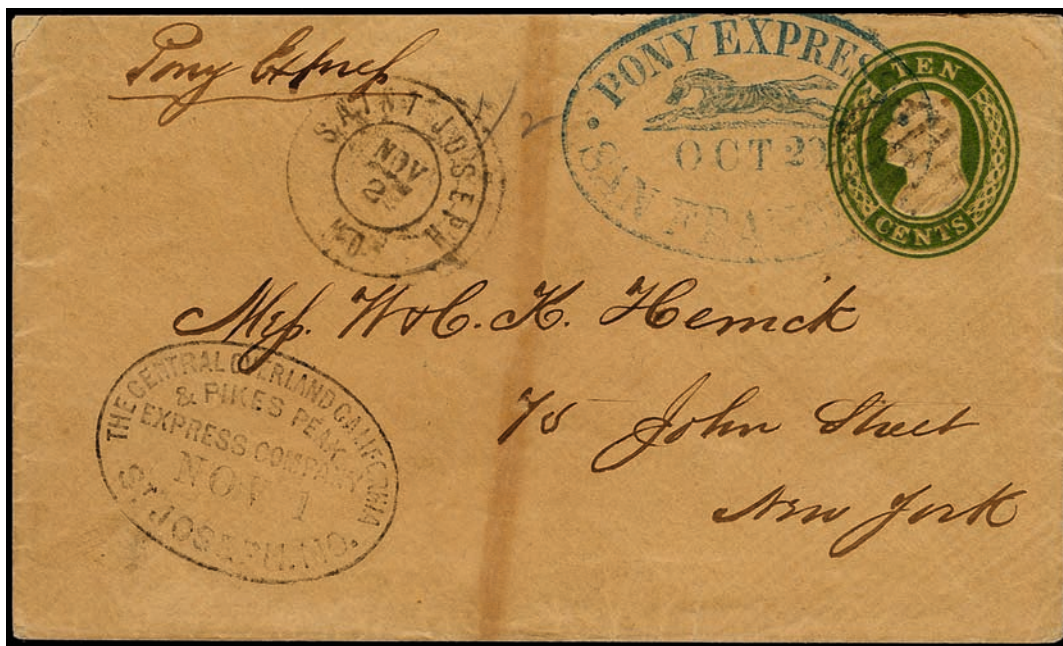 Pony Express
SAINT JOSEPH
NOV
2
MO.
PONY EXPRESS
OCT 20
SAN FRAN
TEN
CENTS
Mess. W & C. K. Herrick
75 John Street
New York
THE CENTRAL OVERLAND CALIFORNIA
& PIKES PEAK
EXPRESS COMPANY
NOV 1
ST. JOSEPH, MO.